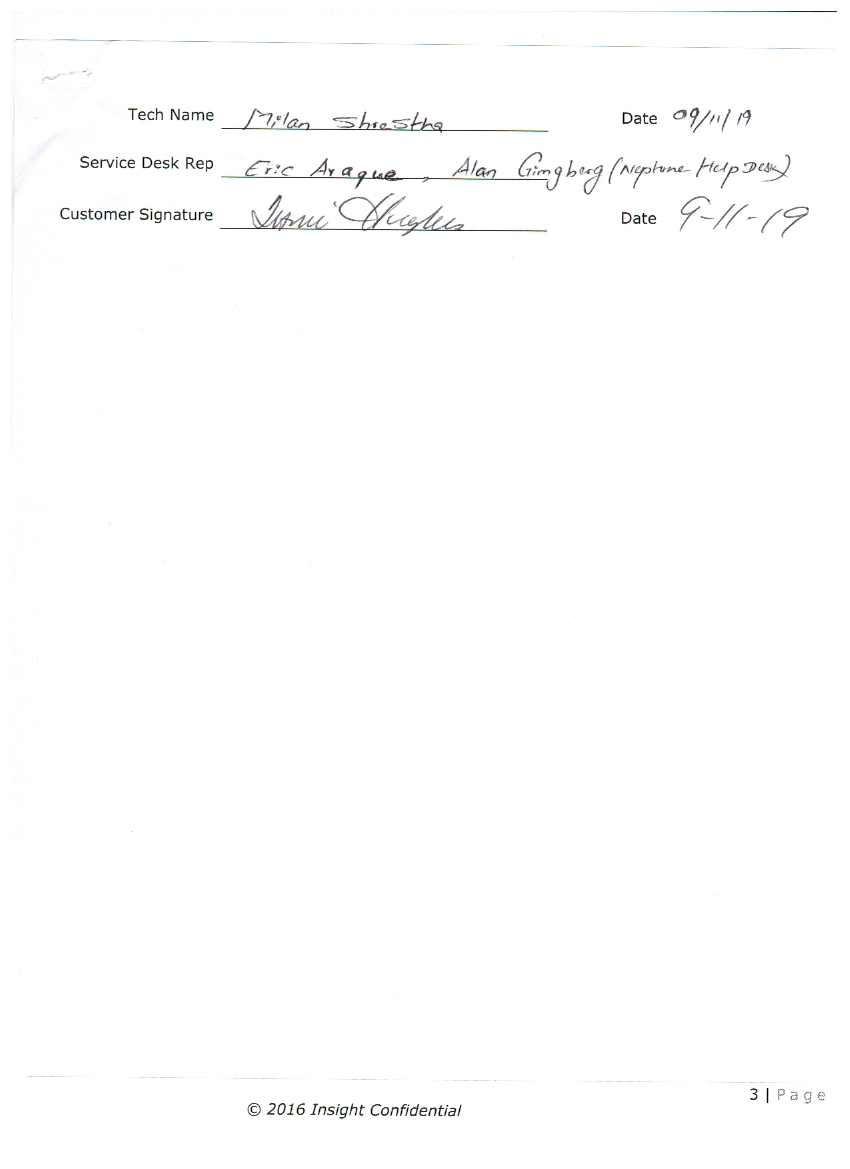 Tech Name Milan Shrestha Date 09/11/19
Service Desk Rep Eric Araque, Alan Gimgberg (Neptune Help Desk)
Customer Signature Hughes Date 9-11-19
3 | Page
© 2016 Insight Confidential